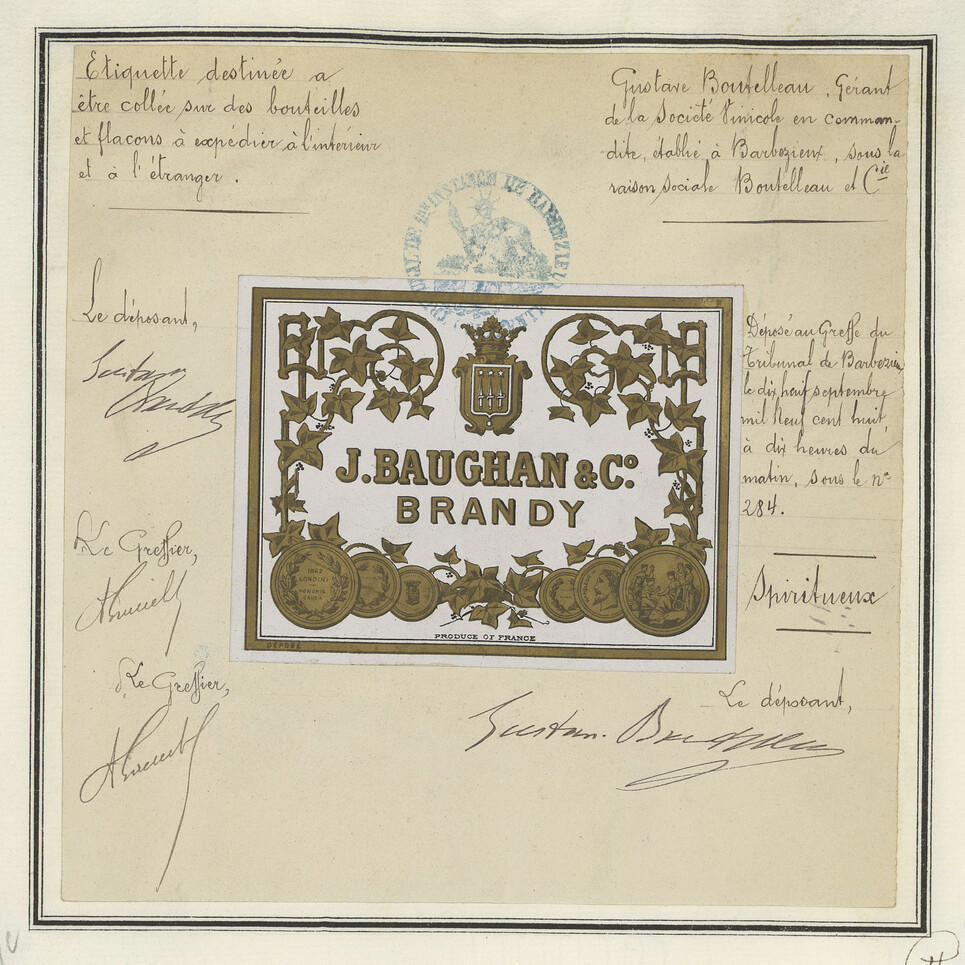 Etiquette destinée a
être collée sur des bouteilles
et flacons à expédier à l'intérieur
et à l'étranger.
Gustave Boutelleau, Gérant
de la Société Vinicole en comman-
dite, établie à Barbezieux, sous la
raison sociale Boutelleau et Cie
TRIBUNAL DE 1ERE INSTANCE DE BARBEZIEUX
Le déposant,
Déposé au Greffe du
Tribunal de Barbezieux
le dix neuf septembre
mil neuf cent huit,
à dix heures du
matin, sous le no
284.
J. BAUGHAN & Co.
BRANDY
1862
LONDINI
HONORIS
CAUSA
PRODUCE OF FRANCE
DÉPOSÉ
Le Greffier,
Spiritueux
Le Greffier,
Le déposant,